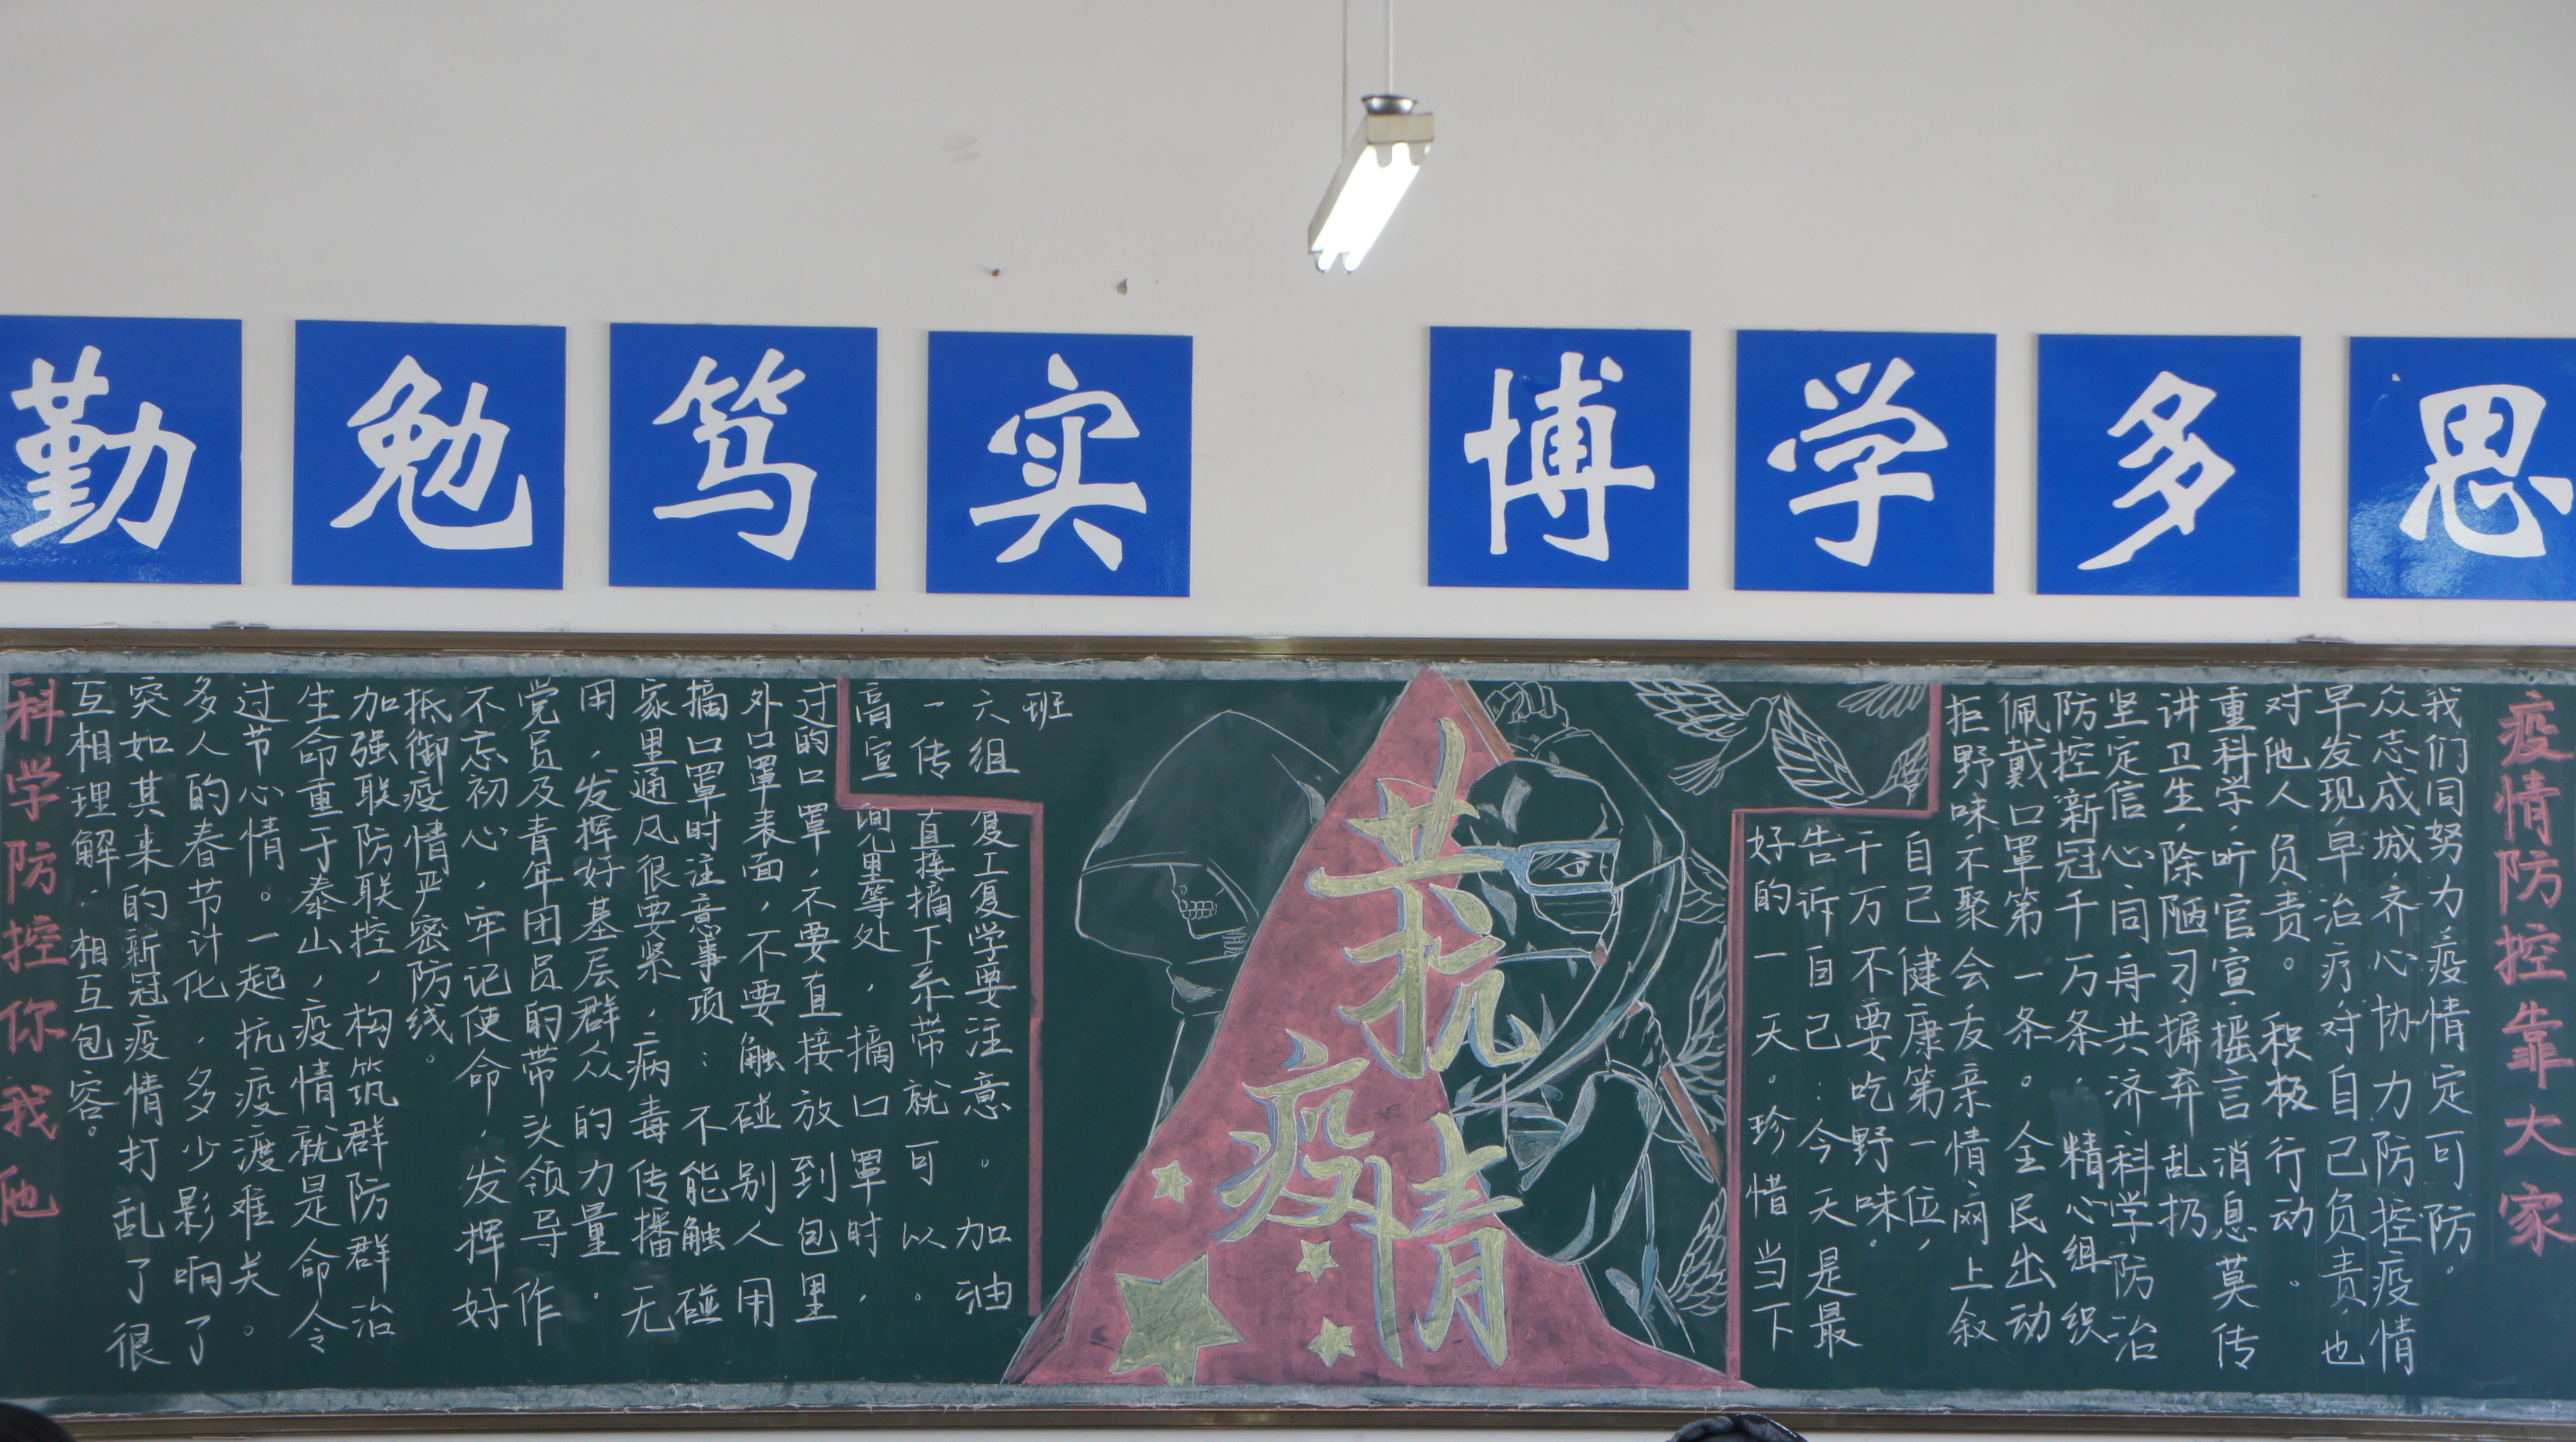 勤勉笃实 博学多思
疫情防控靠大家
我们同努力疫情定可防。
众志成城，齐心协力防控疫情
早发现，早治疗，对自己负责，也
对他人负责。积极行动。
重科学，听官宣，摇言消息莫传
讲卫生，除陋习，摒弃乱扔
坚定信心同舟共济科学防治
防控新冠千万条，精心组织
佩戴口罩第一条。全民出动
拒野味，不聚会友亲情网上叙
自己健康第一位，
千万不要吃野味。
告诉自己：今天是最
好的一天。珍惜当下
共抗
疫情
班
六组 复工复学要注意。加油
一传 直接摘下系带就可以。
高宣 间里等处，摘口罩时，
过的口罩，不要直接放到包里
外口罩表面，不要触碰别人用
摘口罩时注意事项：不能触碰
家里通风很要紧，病毒传播无
用，发挥好基层群众的力量。
党员及青年团员的带头领导作
不忘初心，牢记使命，发挥好
抵御疫情严密防线。
加强联防联控，构筑群防群治
生命重于泰山，疫情就是命令
过节心情。一起抗疫渡难关。
多人的春节计化，多少影响了
突如其来的新冠疫情打乱了很
互相理解，相互包容。
科学防控你我他